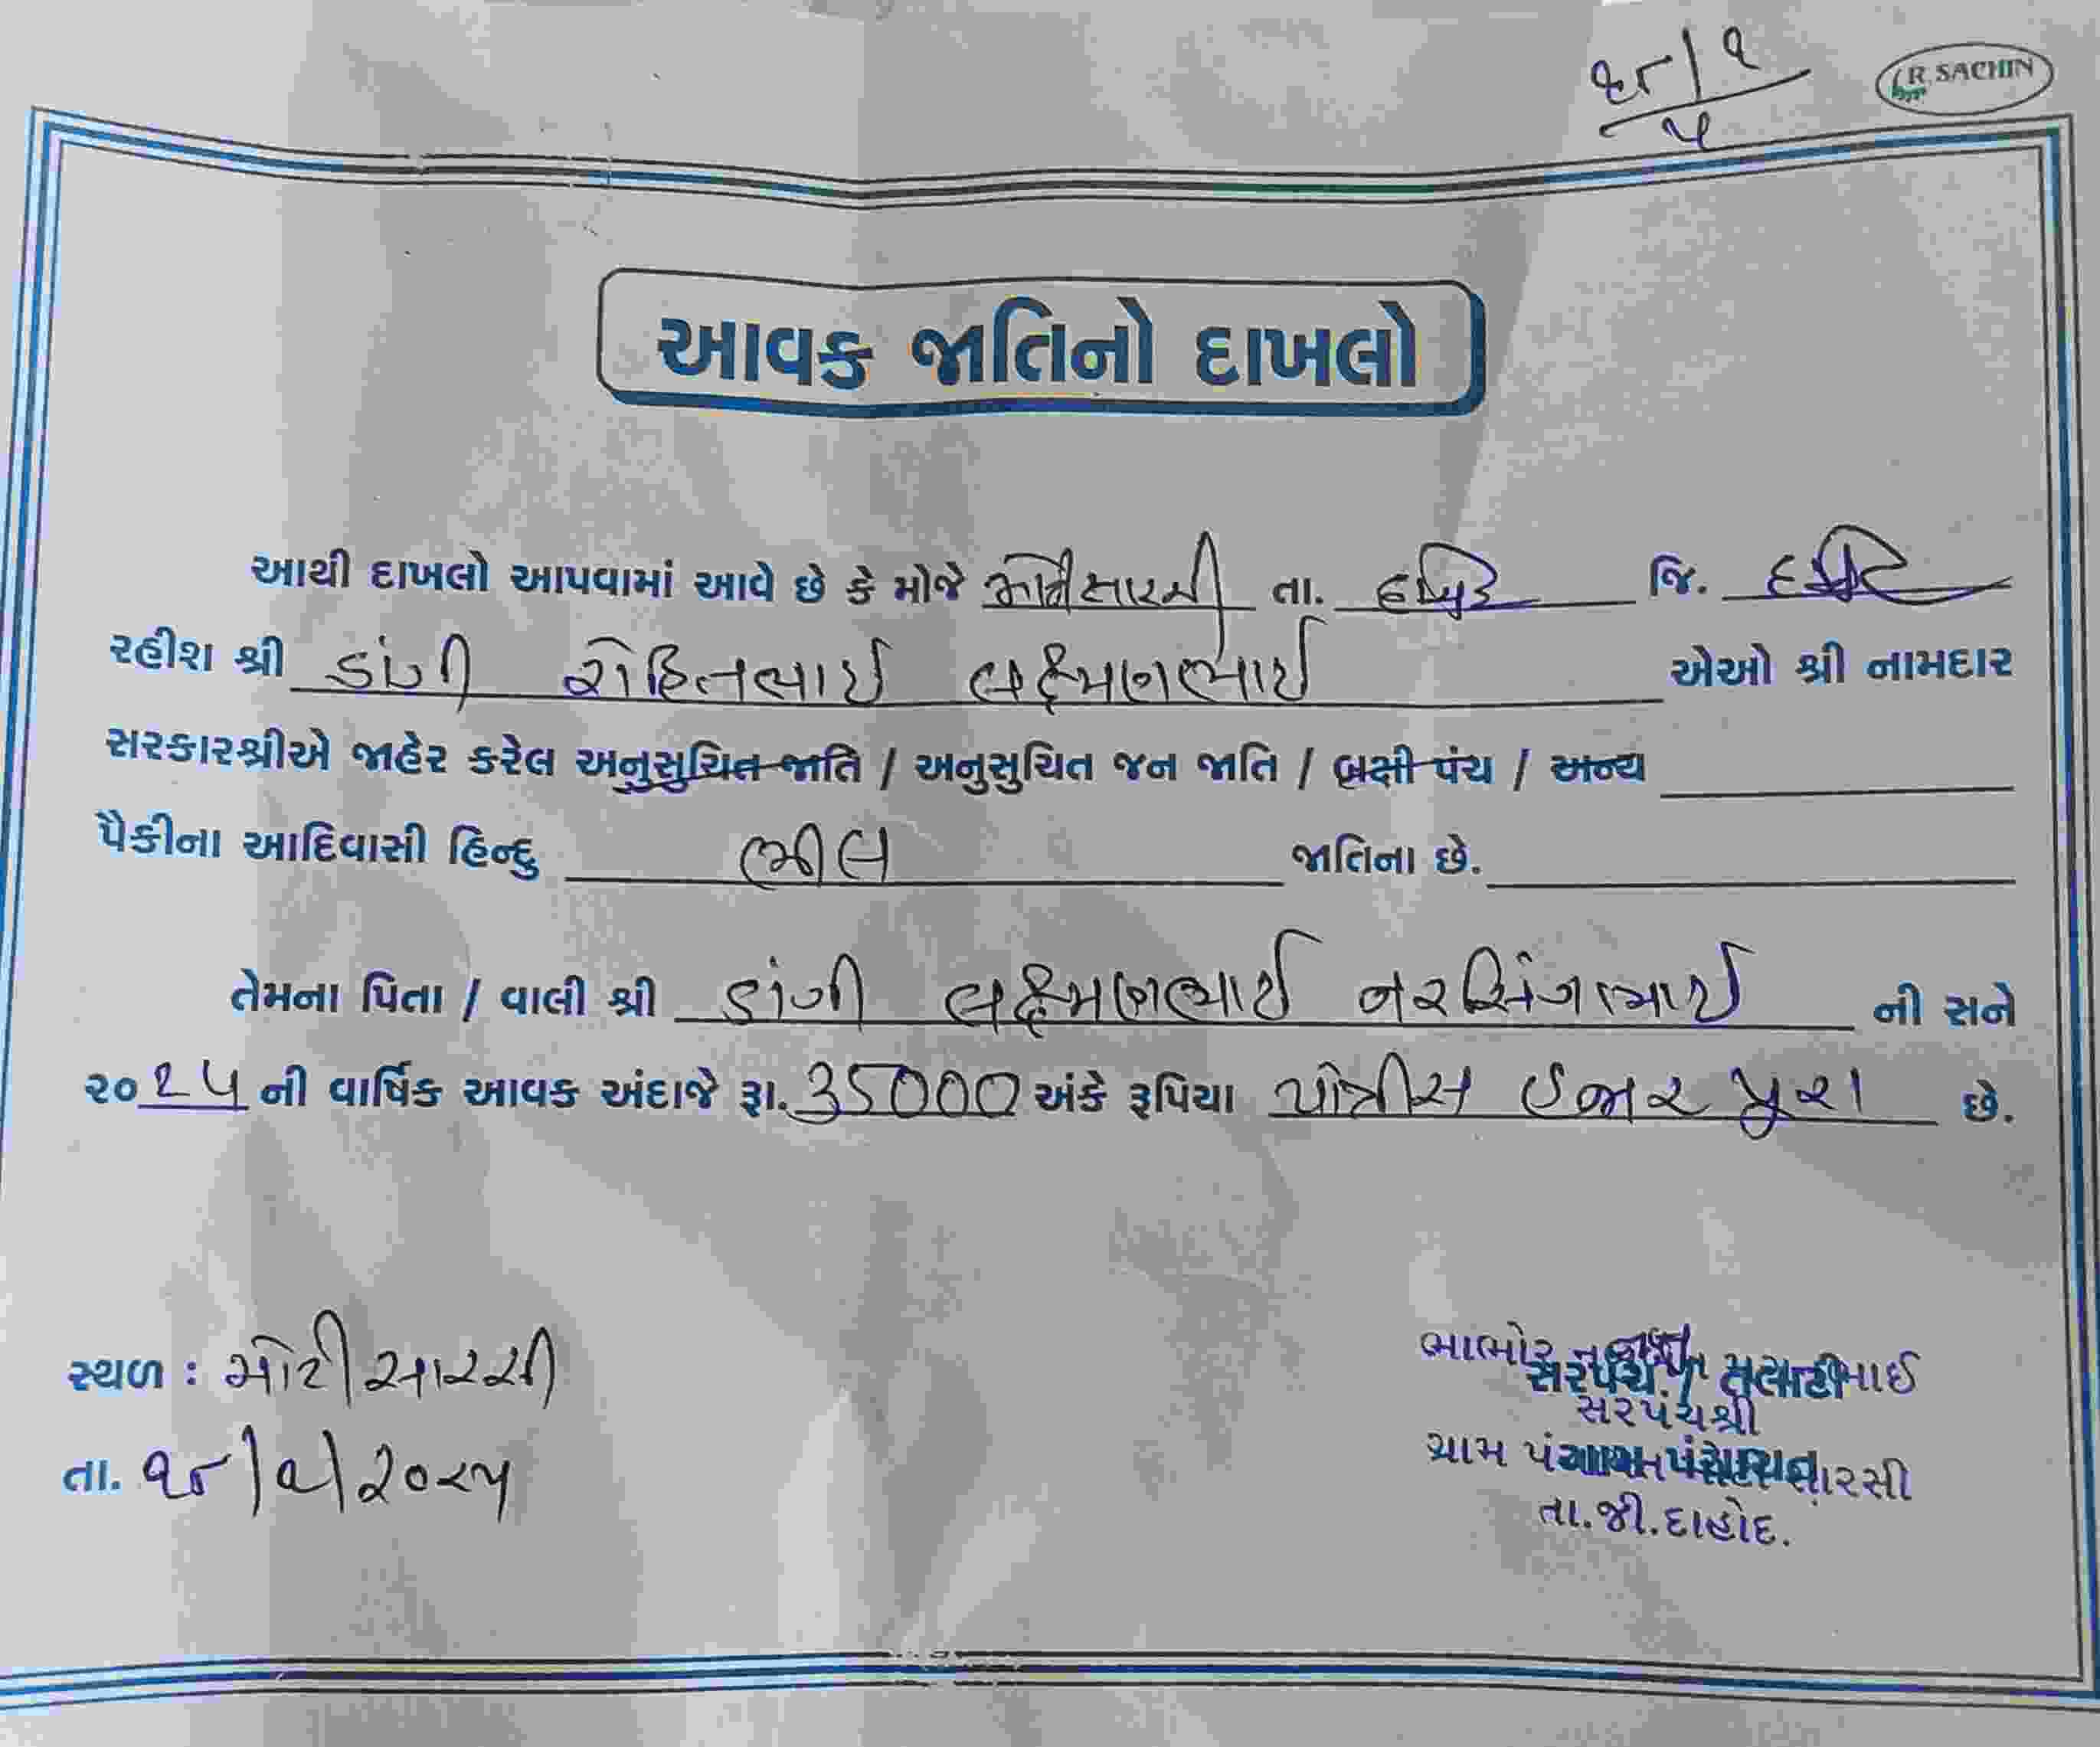 ૧૮/૧
૫
R. SACHIN
આવક જાતિનો દાખલો
આથી દાખલો આપવામાં આવે છે કે મોજે મોટીસારસી તા. દાહોદ જિ. દાહોદ
રહીશ શ્રી ડાંગી રોહિતભાઈ લક્ષ્મણભાઈ એઓ શ્રી નામદાર
સરકારશ્રીએ જાહેર કરેલ અનુસુચિત જાતિ / અનુસુચિત જન જાતિ / બક્ષી પંચ / અન્ય
પૈકીના આદિવાસી હિન્દુ ભીલ જાતિના છે.
તેમના પિતા / વાલી શ્રી ડાંગી લક્ષ્મણભાઈ નરસિંગભાઈ ની સને
૨૦૨૫ ની વાર્ષિક આવક અંદાજે રૂા. 35000 અંકે રૂપિયા પાંત્રીસ હજાર પુરા છે.
સ્થળ : મોટી સારસી
તા. ૧૮/૧/૨૦૨૫
ભાભોર
સરપંચ / તલાટી
સરપંચશ્રી
ગ્રામ પંચાયત
તા.જી.દાહોદ.